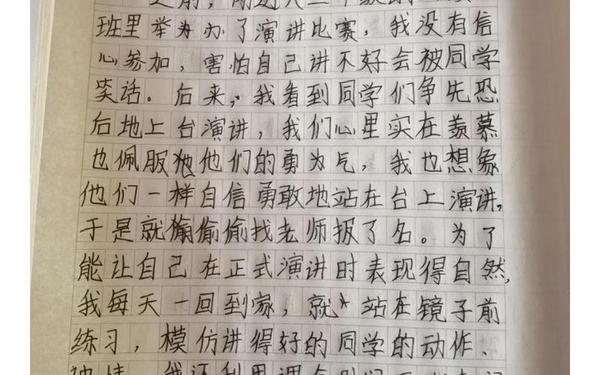 之前,
班里举办了演讲比赛,我没有信
心参加,害怕自己讲不好会被同学
笑话。后来,我看到同学们争先恐
后地上台演讲,我们心里实在羡慕
也佩服他们的勇气,我也想象
他们一样自信勇敢地站在台上演讲,
于是就偷偷找老师报了名。为了
能让自己在正式演讲时表现得自然,
我每天一回到家,就站在镜子前
练习,模仿讲得好的同学的动作、
神情。我还利用课余